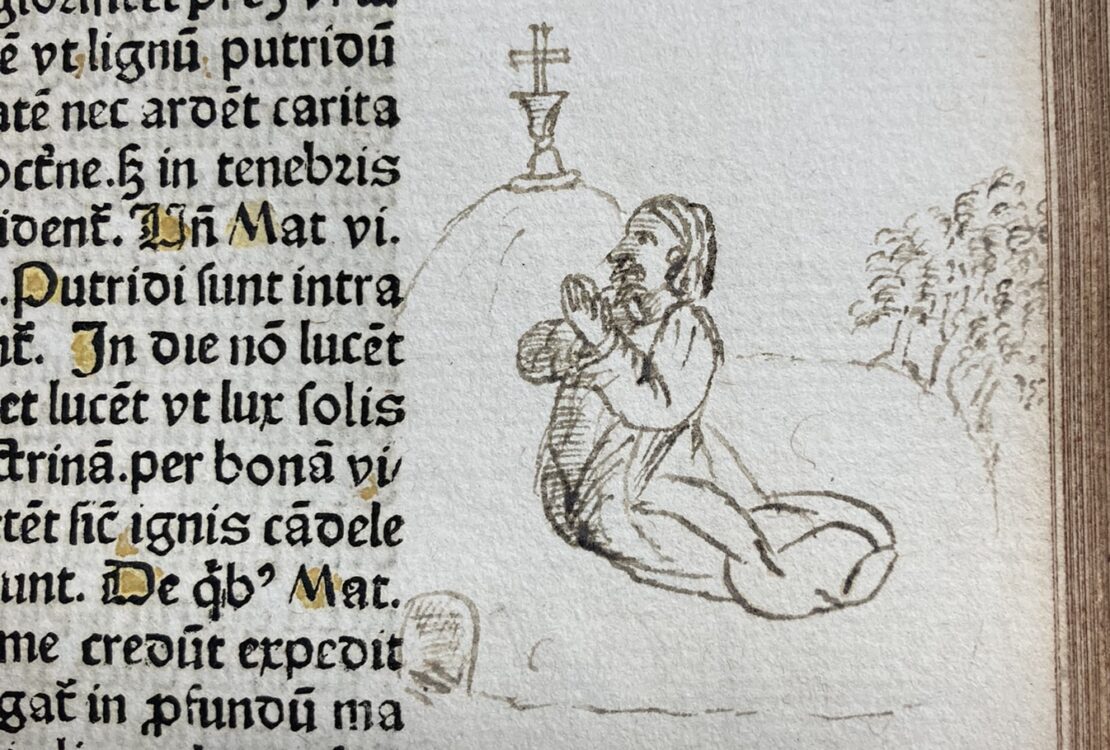 ē vt lignū putridū
atē nec ardēt carita
octrne.ꝫ in tenebris
ident̄. Un̄ Mat vi.
.Putridi ſunt intra
nt̄. In die nō lucēt
et lucēt vt lux ſolis
ctrinā.per bonā vi/
tēt ſic̄ ignis cādele
unt. De q̇bꝰ Mat.
me credūt expedit
gat̄ in ꝓfundū ma